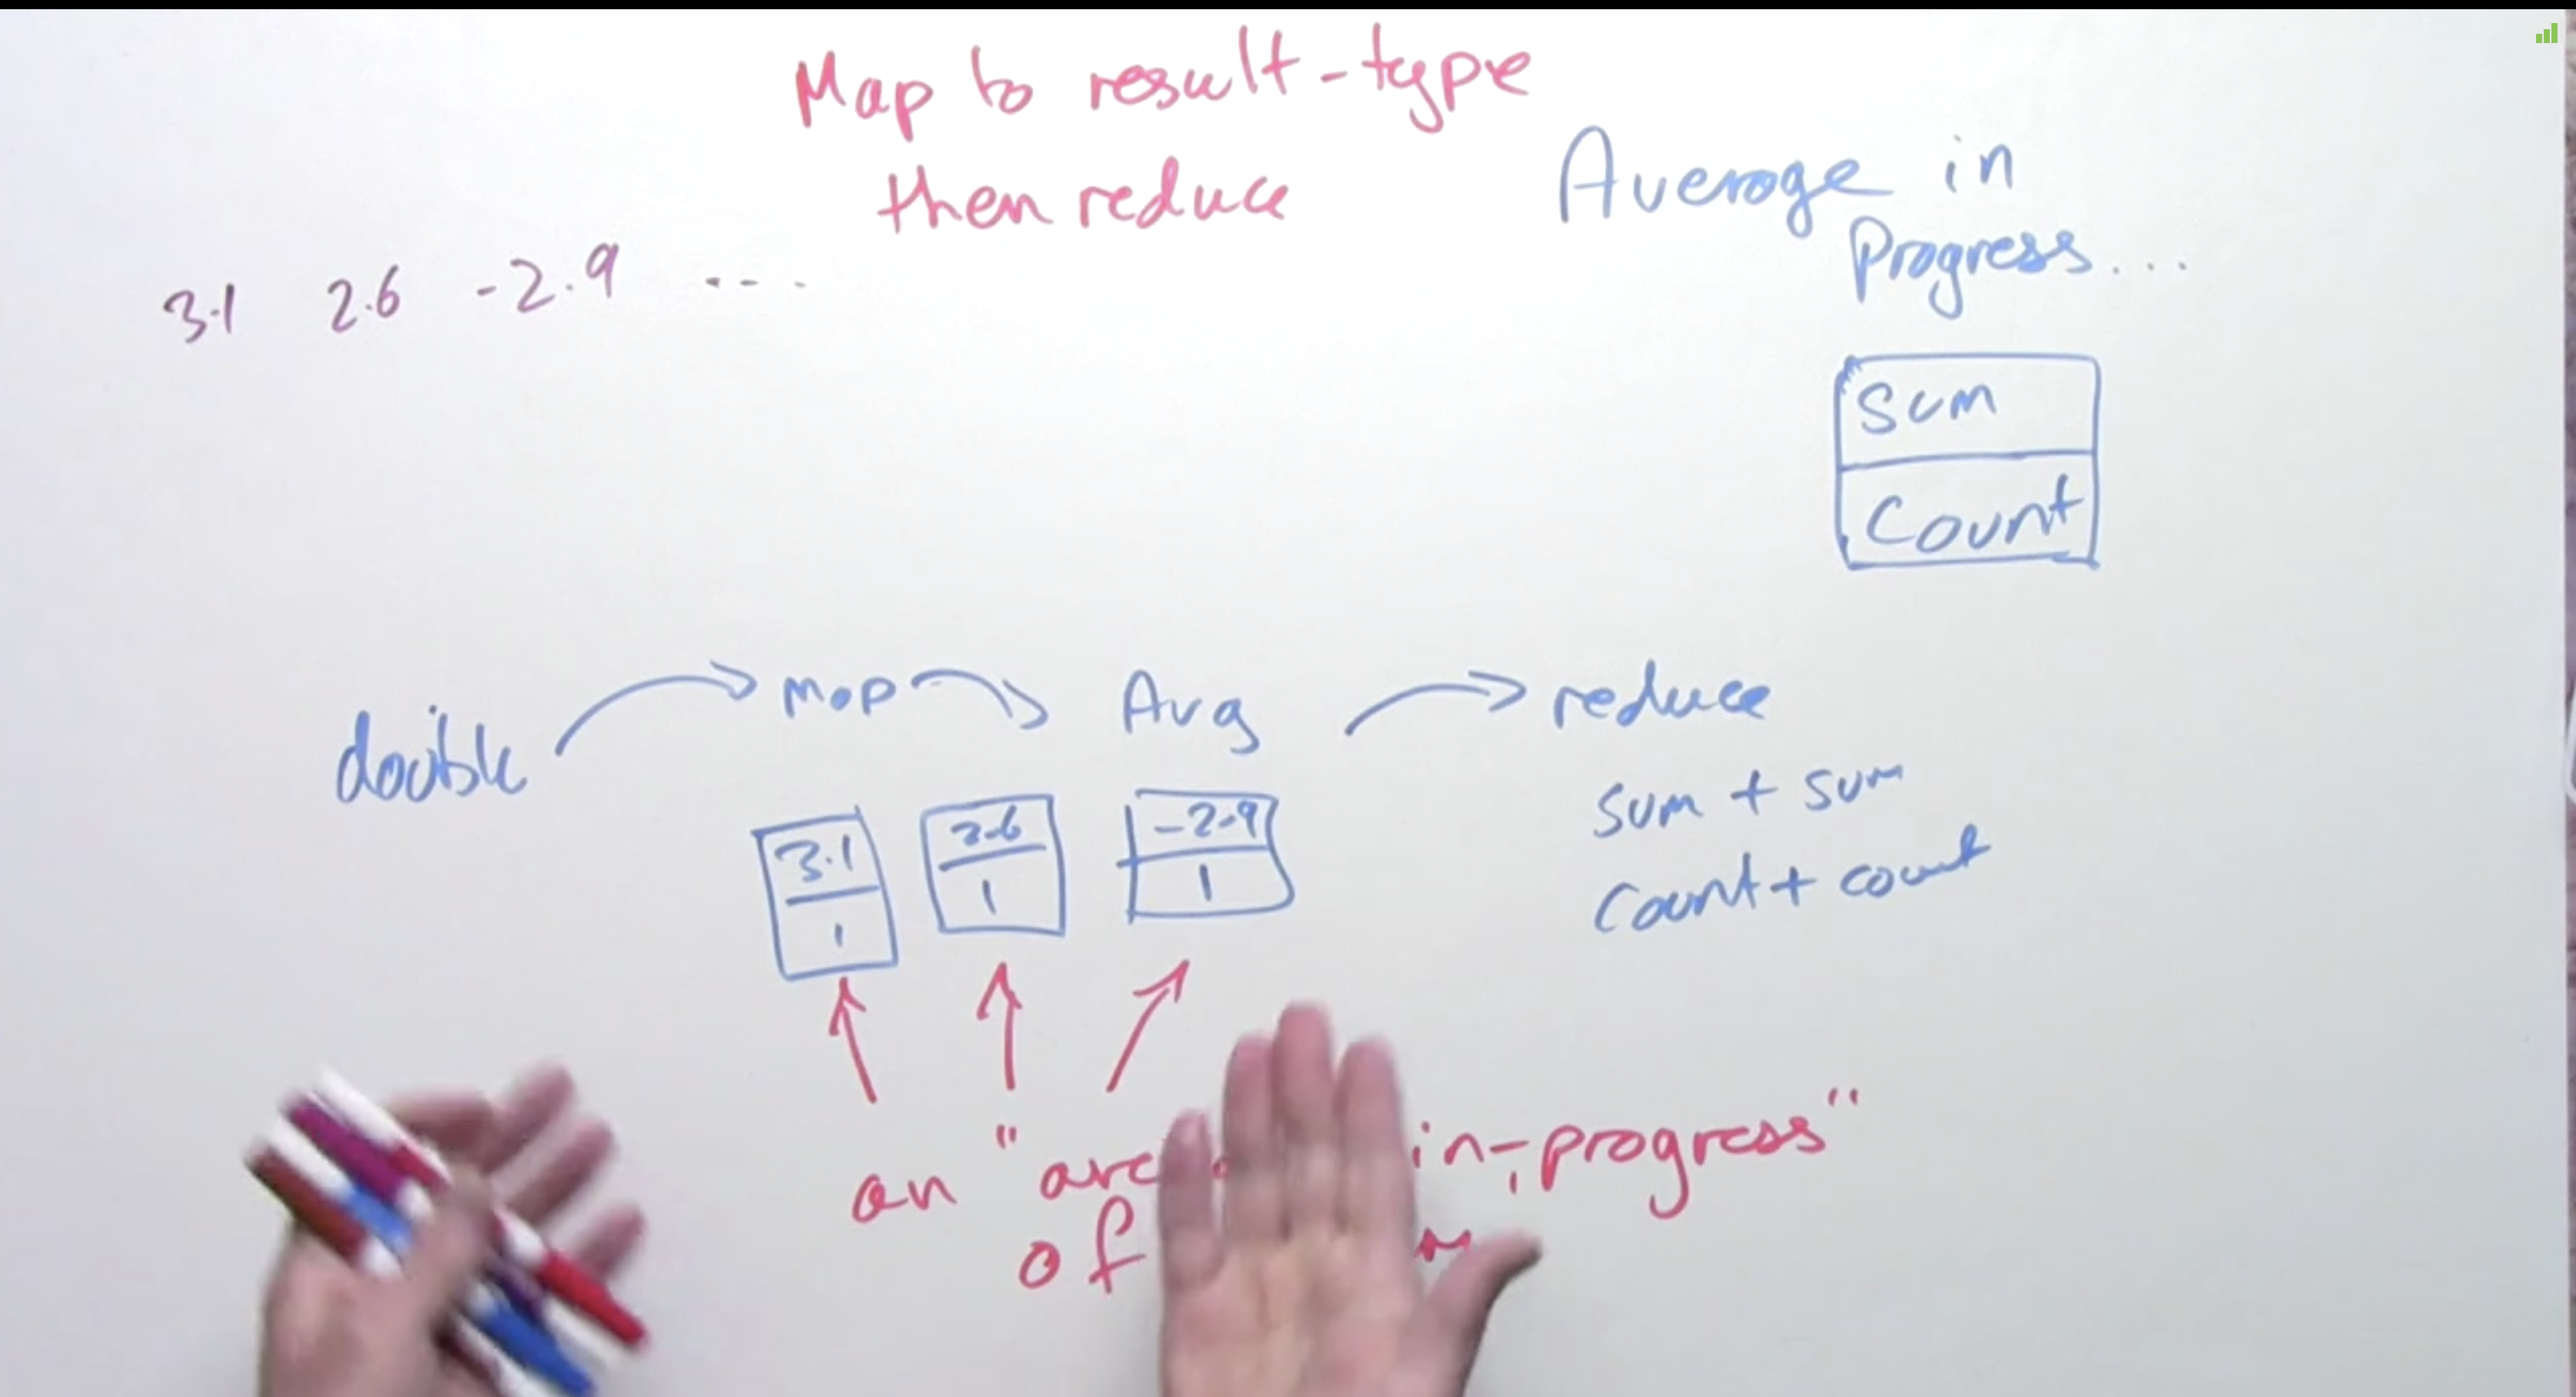 Map to result-type
then reduce
Average in
Progress...
3.1 2.6 -2.9 ...
Sum
Count
double Map Avg reduce
3.1
1
2.6
1
-2.9
1
sum + sum
count + count
an " in-progress"
of